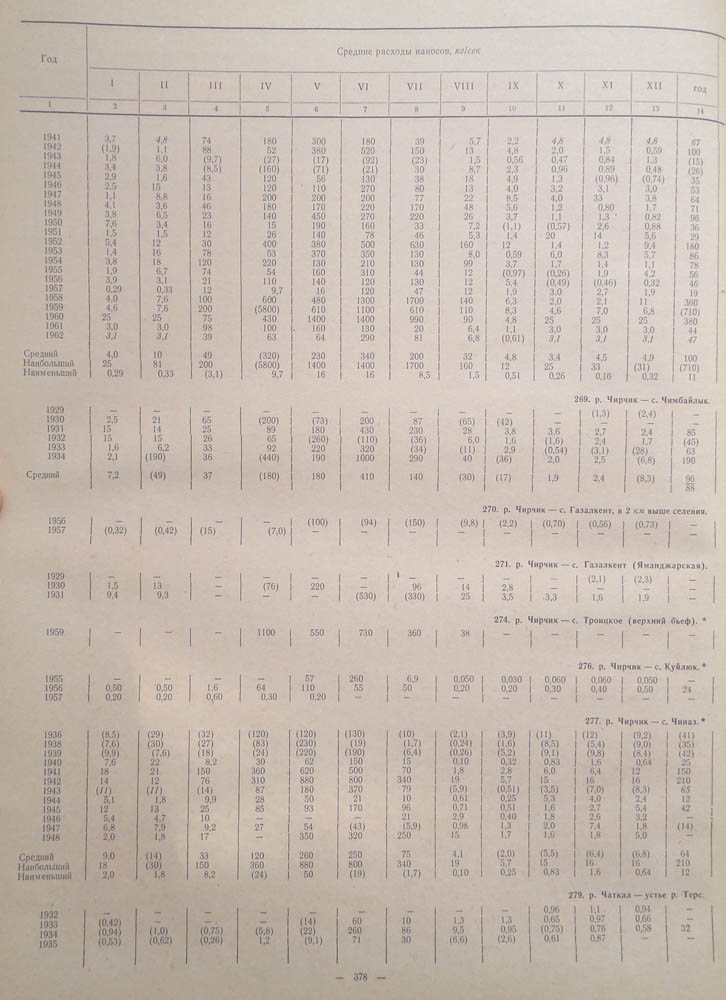 Год Средние расходы наносов, кг/сек
I II III IV V VI VII VIII IX X XI XII год
1 2 3 4 5 6 7 8 9 10 11 12 13 14
1941 3,7 4,8 74 180 300 180 39 5,7 2,2 4,8 4,8 4,8 67
1942 (1,9) 1,1 88 52 380 520 150 13 4,8 2,0 1,5 0,59 100
1943 1,8 6,0 (9,7) (27) (17) (92) (23) 1,5 0,56 0,47 0,84 1,3 (15)
1944 3,4 3,8 (8,5) (160) (71) (21) 30 8,7 2,3 0,96 0,89 0,48 (26)
1945 2,9 1,6 43 120 56 130 38 18 4,9 1,3 (0,96) (0,74) 35
1946 2,5 15 13 120 110 270 80 13 4,0 3,2 3,1 3,0 53
1947 1,1 8,8 16 200 200 200 77 22 8,5 4,0 33 3,8 64
1948 4,1 3,6 46 180 170 220 170 48 5,6 1,2 0,80 1,7 71
1949 3,8 6,5 23 140 450 270 220 26 3,7 1,1 1,3 0,82 96
1950 7,6 3,4 16 15 190 160 33 7,2 (1,1) (0,57) 2,6 0,88 36
1951 1,5 1,5 12 26 140 78 46 5,3 1,4 20 14 5,6 29
1952 5,4 12 30 400 380 500 630 160 12 1,4 1,2 9,4 180
1953 1,4 16 78 53 370 350 130 8,0 0,59 6,0 8,3 5,7 86
1954 3,8 18 120 220 130 210 130 99 3,7 1,7 1,4 1,1 78
1955 1,9 6,7 74 54 160 310 44 12 (0,97) (0,26) 1,9 4,2 56
1956 3,9 3,1 21 110 140 120 130 12 5,4 (0,49) (0,46) 0,32 46
1957 0,29 0,33 12 9,7 16 120 47 12 1,9 3,0 2,7 1,9 19
1958 4,0 7,6 100 600 480 1300 1700 140 6,3 2,0 2,1 11 360
1959 4,6 7,6 200 (5800) 610 1100 610 110 8,3 4,6 7,0 6,8 (710)
1960 25 25 75 430 1400 1400 990 90 4,8 25 25 25 380
1961 3,0 3,0 98 100 160 130 20 6,4 1,1 3,0 3,0 3,0 44
1962 3,1 3,1 39 63 64 290 81 6,8 (0,61) 3,1 3,1 3,1 47
Средний 4,0 10 49 (320) 230 340 200 32 4,8 3,4 4,5 4,9 100
Наибольший 25 81 200 (5800) 1400 1400 1700 160 12 25 33 (31) (710)
Наименьший 0,29 0,33 (3,1) 9,7 16 16 8,5 1,5 0,51 0,26 0,16 0,32 11
269. р. Чирчик — с. Чимбайлык.
1929 — — — — — — — — — — (1,3) (2,4) —
1930 2,5 21 65 (200) (73) 200 87 (65) (42) — — — —
1931 15 14 25 89 180 430 230 28 3,8 3,6 2,7 2,4 85
1932 15 15 26 65 (260) (110) (36) 6,0 1,6 (1,6) 2,4 1,7 (45)
1933 1,6 6,2 33 92 220 320 (34) (11) 2,9 (0,54) (3,1) (28) 63
1934 2,1 (190) 36 (440) 190 1000 290 40 (36) 2,0 2,5 (6,8) 190
Средний 7,2 (49) 37 (180) 180 410 140 (30) (17) 1,9 2,4 (8,3) 96
88
270. р. Чирчик — с. Газалкент, в 2 км выше селения.
1956 — — — — (100) (94) (150) (9,8) (2,2) (0,70) (0,56) (0,73) —
1957 (0,32) (0,42) (15) (7,0) — — — — — — — — —
271. р. Чирчик — с. Газалкент (Яманджарская).
1929 — — — — — — — — — — (2,1) (2,3) —
1930 1,5 13 — (76) 220 — 96 14 2,8 — — — —
1931 9,4 9,3 — — — (530) (330) 25 3,5 3,3 1,6 1,9 —
274. р. Чирчик — с. Троицкое (верхний бьеф). *
1959 — — — 1100 550 730 360 38 — — — — —
276. р. Чирчик — с. Куйлюк. *
1955 — — — — 57 260 6,9 0,050 0,030 0,060 0,060 0,050 —
1956 0,50 0,50 1,6 64 110 55 50 0,20 0,20 0,30 0,40 0,50 24
1957 0,20 0,20 0,60 0,30 0,20 — — — — — — — —
277. р. Чирчик — с. Чиназ. *
1936 (8,5) (29) (32) (120) (120) (130) (10) (2,1) (3,9) (11) (12) (9,2) (41)
1938 (7,6) (30) (27) (83) (230) (19) (1,7) (0,24) (1,6) (8,5) (5,4) (9,0) (35)
1939 (9,9) (7,6) (18) (24) (220) (190) (6,4) (0,26) (5,2) (9,1) (9,8) (8,4) (42)
1940 7,6 22 8,2 30 62 150 15 0,10 0,32 0,83 1,6 0,64 25
1941 18 21 150 360 620 500 70 1,8 2,8 6,0 6,4 12 150
1942 14 12 76 310 880 800 340 19 5,7 15 16 16 210
1943 (11) (11) (14) 87 180 370 79 (5,9) (0,51) (3,5) (7,0) (8,3) 65
1944 5,1 1,8 9,9 28 50 21 10 0,61 0,25 5,3 4,0 2,4 12
1945 12 13 25 85 93 170 96 0,71 0,51 1,6 2,7 5,4 42
1946 5,4 4,7 10 — — — 21 2,9 0,40 1,8 2,6 3,2 —
1947 6,8 7,9 9,2 27 54 (43) (5,9) 0,98 1,3 2,0 7,4 1,8 (14)
1948 2,0 1,8 17 — 350 320 250 15 1,7 1,6 1,8 5,0 —
Средний 9,0 (14) 33 120 260 250 75 4,1 (2,0) (5,5) (6,4) (6,8) 64
Наибольший 18 (30) 150 360 880 800 340 19 5,7 15 16 16 210
Наименьший 2,0 1,8 8,2 (24) 50 (19) (1,7) 0,10 0,25 0,83 1,6 0,64 12
279. р. Чаткал — устье р. Терс.
1932 — — — — — — — — — 0,96 1,1 0,94 —
1933 (0,42) — — — (14) 60 10 1,3 1,3 0,65 0,97 0,66 —
1934 (0,94) (1,0) (0,75) (5,8) (22) 260 86 9,5 0,95 (0,75) 0,76 0,58 32
1935 (0,53) (0,62) (0,26) 1,2 (9,1) 71 30 (6,6) (2,6) 0,61 0,87 — —
— 378 —